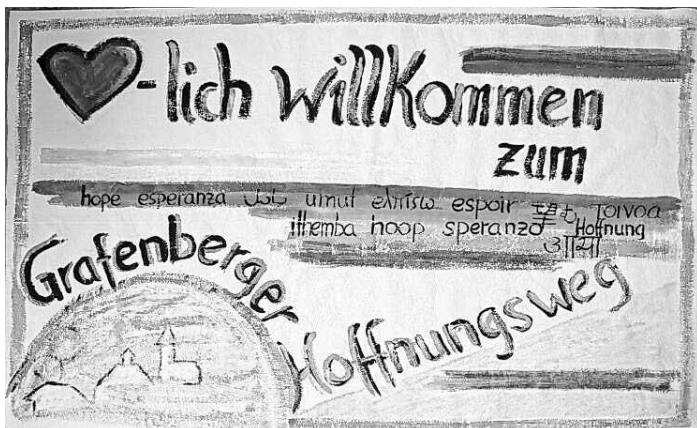 -lich Willkommen
zum
hope esperanza umut espoir 望む Toivoa
ithemba hoop speranza Hoffnung
आशा
Grafenberger
Hoffnungsweg